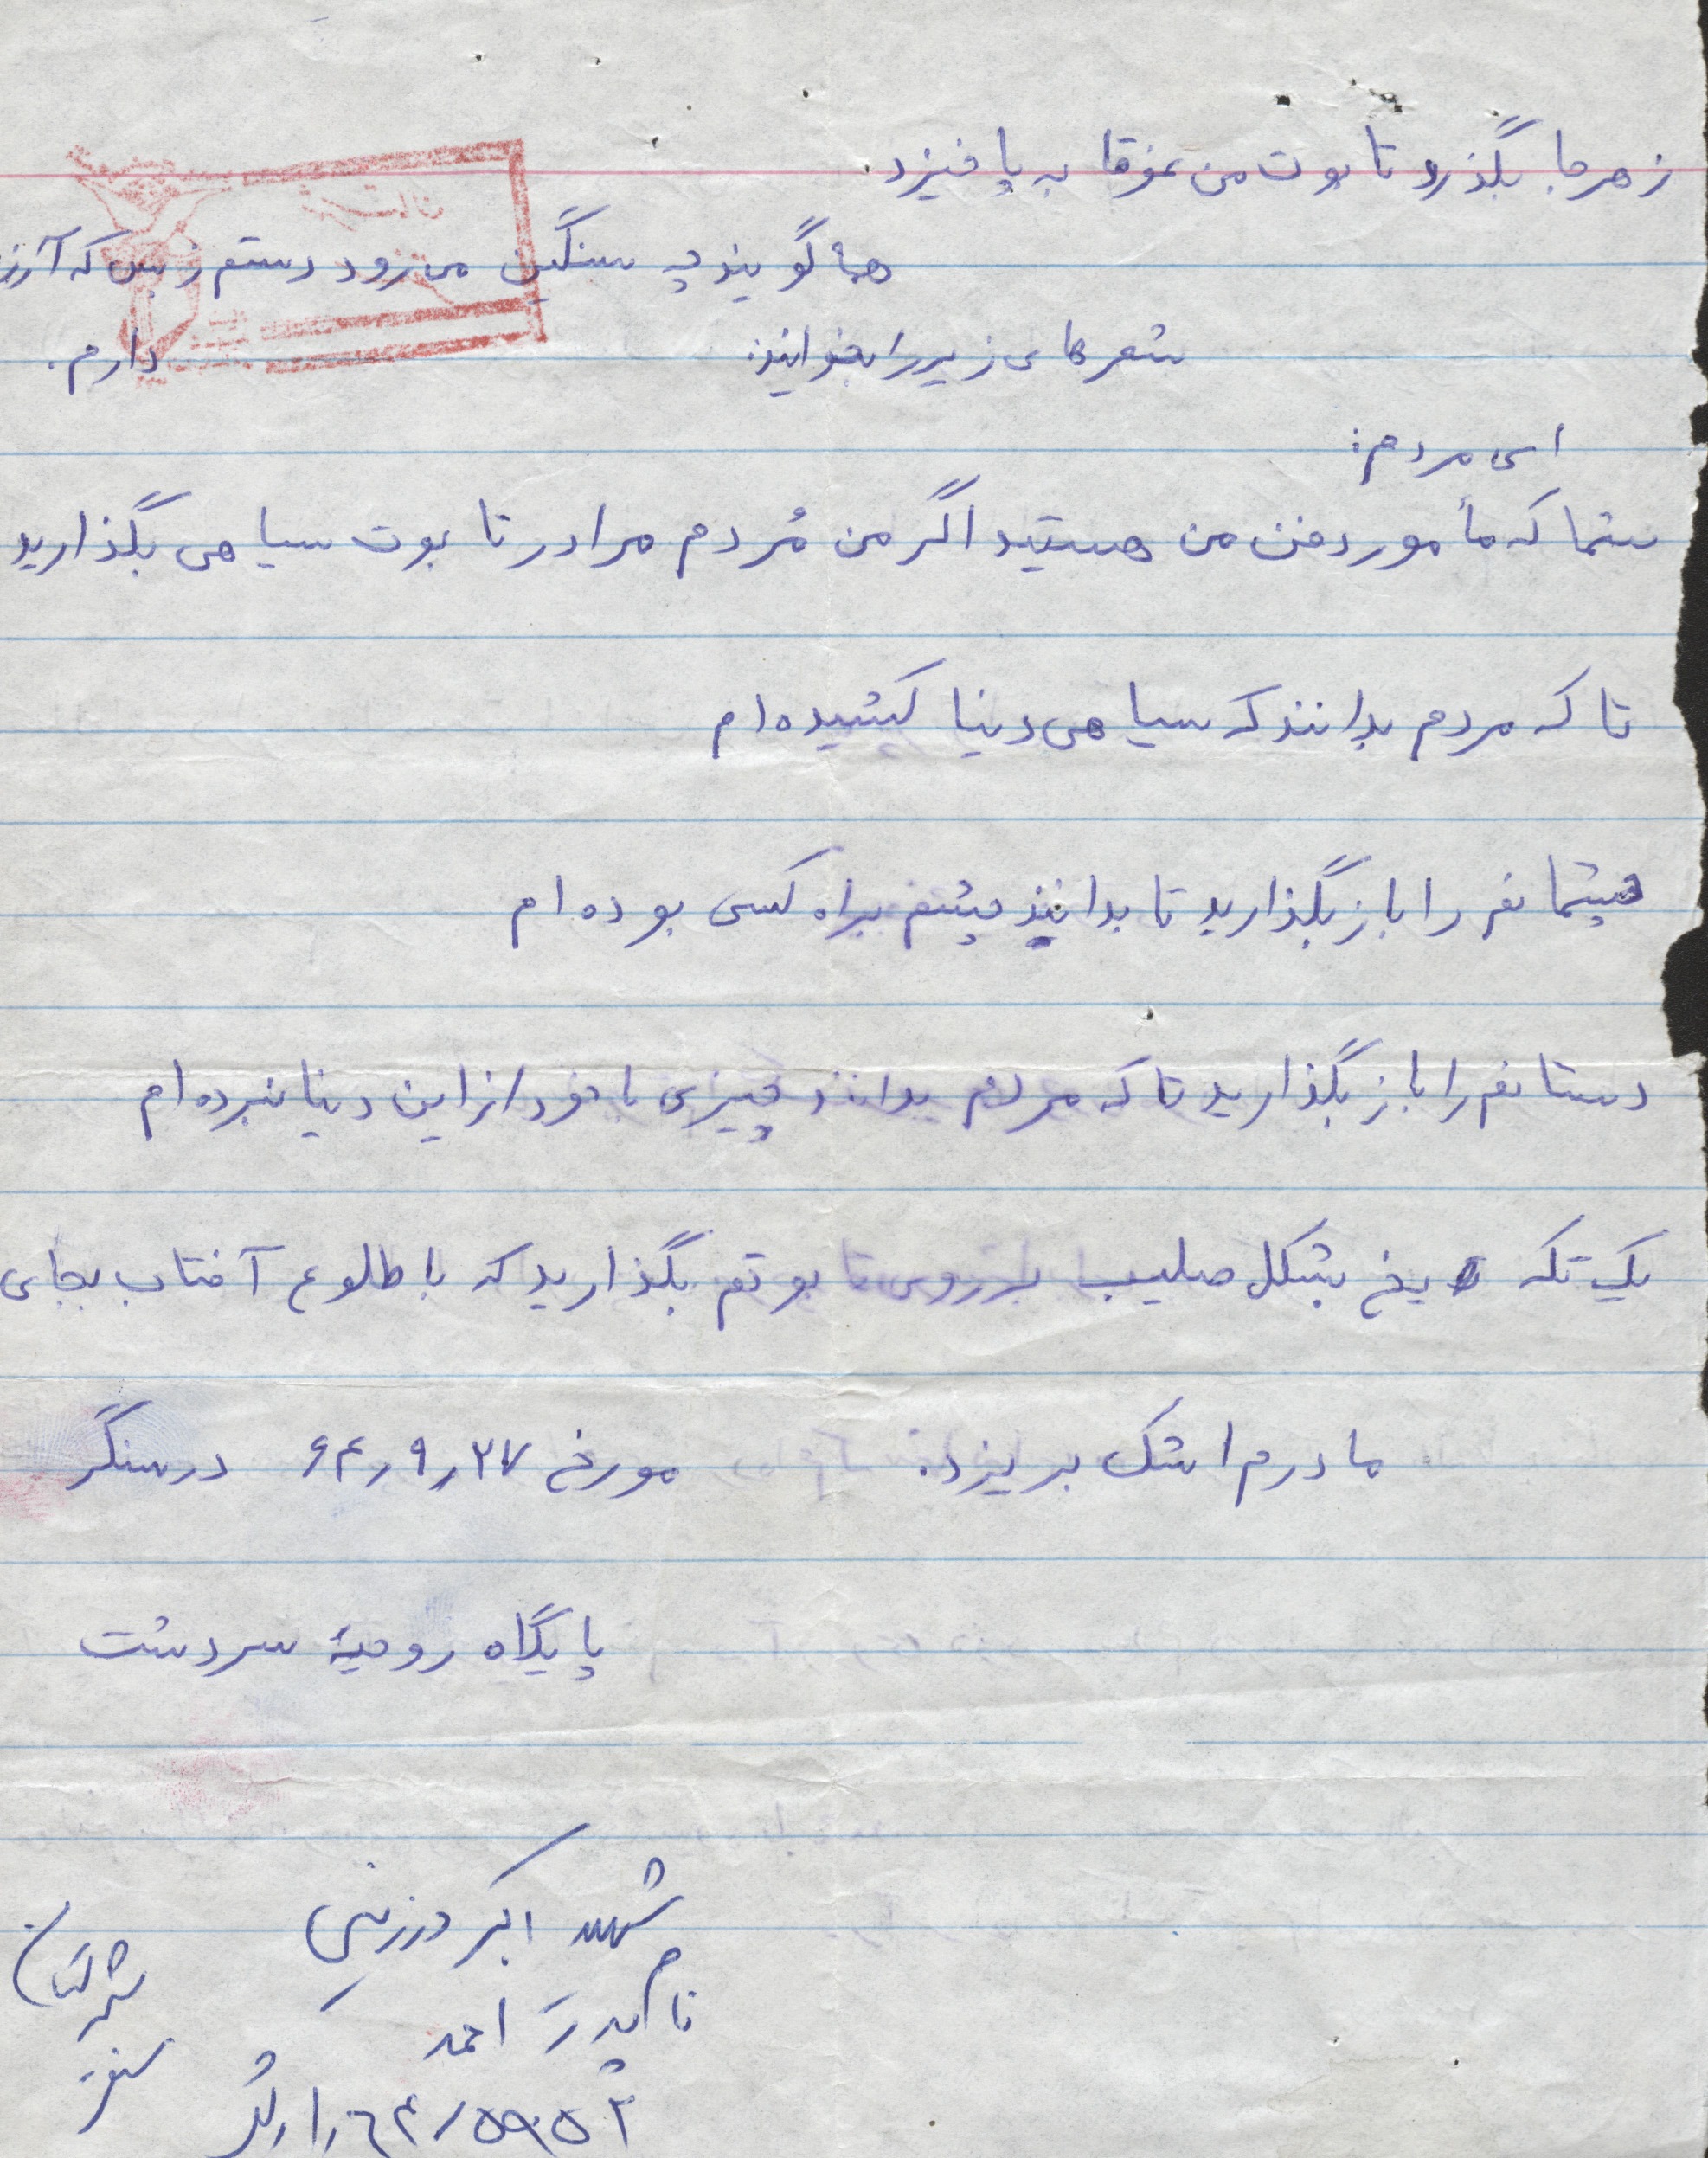 ز هرجا بگذرد تابوت من غوقا به پا خیزد.
همه گویند چه سنگین می رود دستم ز بس که آرزو
شعرهای زیر را بخوانید: دارم.
ای مردم:
شما که مأمور دفن من هستید اگر من مُردم مرا در تابوت سیاهی بگذارید
تا که مردم بدانند که سیاهی دنیا کشیده ام
چشمانم را باز بگذارید تا بدانند چشم براه کسی بوده ام
دستانم را باز بگذارید تا که مردم بدانند چیزی با خود از این دنیا نبرده ام
یک تکه یخ بشکل صلیب بر روی تابوتم بگذارید که با طلوع آفتاب بجای
مادرم اشک بریزد. مورخ ۶۴٫۹٫۲۷ در سنگر
پایگاه روحیهٔ سردشت
شهید اکبر ورزنی
نام پدر احمد